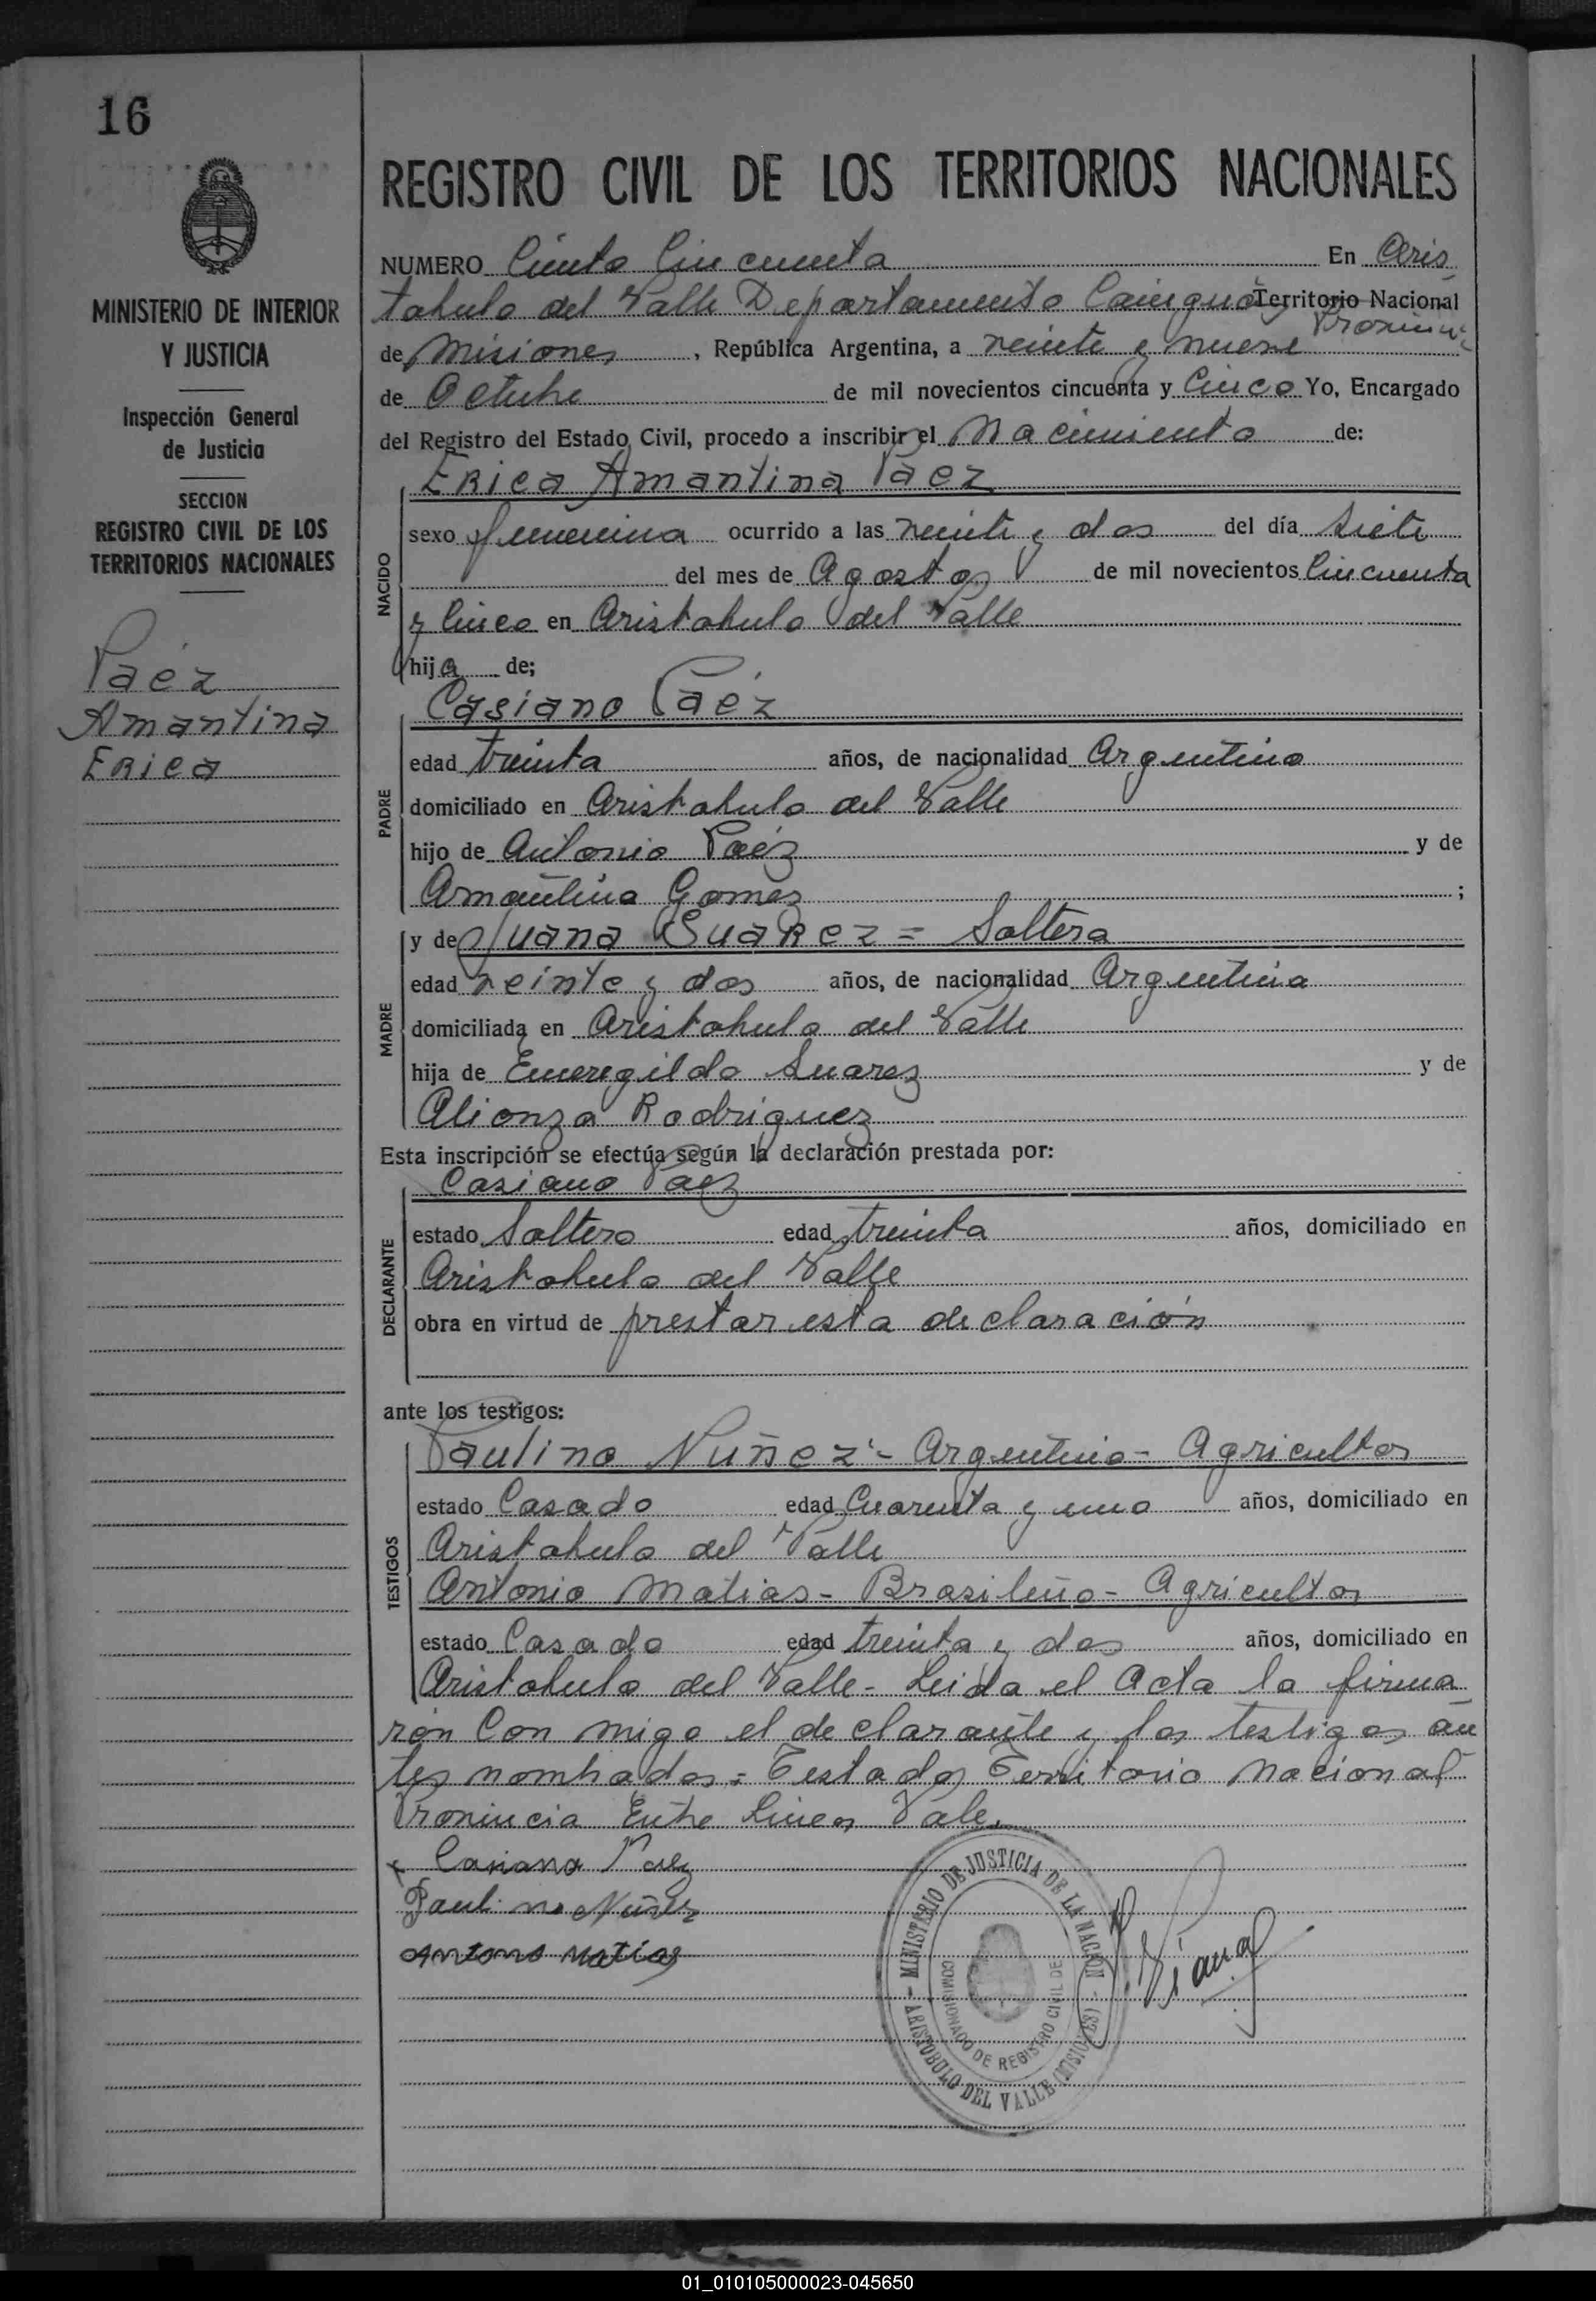 16
MINISTERIO DE INTERIOR
Y JUSTICIA
Inspección General
de Justicia
SECCION
REGISTRO CIVIL DE LOS
TERRITORIOS NACIONALES
Paéz
Amantina
Erica
REGISTRO CIVIL DE LOS TERRITORIOS NACIONALES
NUMERO Ciento Cincuenta En Aris
tobulo del Valle Departamento Cainguás Territorio Nacional
Provincia
de Misiones, República Argentina, a veinte y nueve
de Octubre de mil novecientos cincuenta y Cinco Yo, Encargado
del Registro del Estado Civil, procedo a inscribir el Nacimiento de:
Erica Amantina Paez
sexo femenina ocurrido a las veinte y dos del día siete
del mes de Agosto de mil novecientos Cincuenta
NACIDO
y Cinco en Aristobulo del Valle
hija de;
Casiano Paéz
edad treinta años, de nacionalidad Argentino
PADRE
domiciliado en Aristobulo del Valle
hijo de Antonio Paéz y de
Amantina Gomez ;
y de Juana Suarez = Soltera
edad veinte y dos años, de nacionalidad Argentina
MADRE
domiciliada en Aristobulo del Valle
hija de Emeregildo Suarez y de
Alionza Rodriguez
Esta inscripción se efectúa según la declaración prestada por:
Casiano Paez
estado Soltero edad treinta años, domiciliado en
DECLARANTE
Aristobulo del Valle
obra en virtud de prestar esta declaración
ante los testigos:
Paulino Nuñez - Argentino - Agricultor
estado Casado edad Cuarenta y uno años, domiciliado en
TESTIGOS
Aristobulo del Valle
Antonio Matias - Brasileño - Agricultor
estado Casado edad treinta y dos años, domiciliado en
Aristobulo del Valle - Leida el Acta la firma
rón Con migo el declarante y los testigos an
tes nombados = Testados Territorio Nacional
Provincia Entre Lineas Vale.
Casiano Paez
Paulino Nuñez
Antono Matias
MINISTERIO DE JUSTICIA DE LA NACION
COMISIONADO DE REGISTRO CIVIL DE
ARISTOBULO DEL VALLE (MISIONES)
01_010105000023-045650